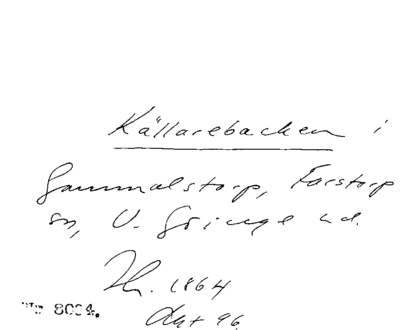 Källarebacken i
Gammalstorp, Farstorp
sn, V. Göinge hd.
Th. 1864
dat 96
8004.